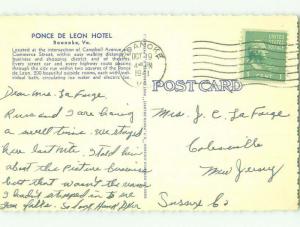 PONCE DE LEON HOTEL
Roanoke, Va.
Located at the intersection of Campbell Avenue and
Commerce Street, within easy walking distance of
business and shopping districts, and of theatres.
Every street car and every highway route passing
through the city run within two squares of the Ponce
de Leon. 200 beautiful outside rooms, each with
bath, circulating ice water, electric fan,
ROANOKE
OCT 19
4 PM
1941
VA.
POST CARD
Dear Mrs. La Forge,
Russ and I are having
a swell time. We stayed
here last nite. I told him
about the Picture business
but that wasn't the reason
I hadn't stopped in to see
your folks. So long
Mrs. J. C. La Forge
Colesville
New Jersey
Sussex Co